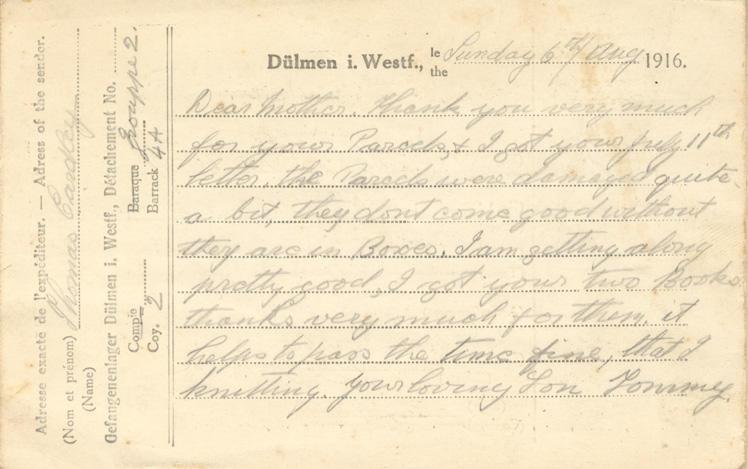 Dülmen i. Westf., le
the Sunday 6th Aug 1916.
Dear Mother. Thank you very much
for your Parcels, & I got your July 11th
letter. the Parcels were damaged quite
a bit, they dont come good without
they are in Boxes. I am getting along
pretty good, I got your two Books
thanks very much for them, it
helps to pass the time fine, that &
knitting. your loving Son Tommy.
Adresse exacte de l'expéditeur. — Adress of the sender.
(Nom et prénom) Thomas
(Name)
Gefangenenlager Dülmen i. Westf., Détachement No.
Compie Baraque Grouppe 2.
Coy. 2 Barrack 4A